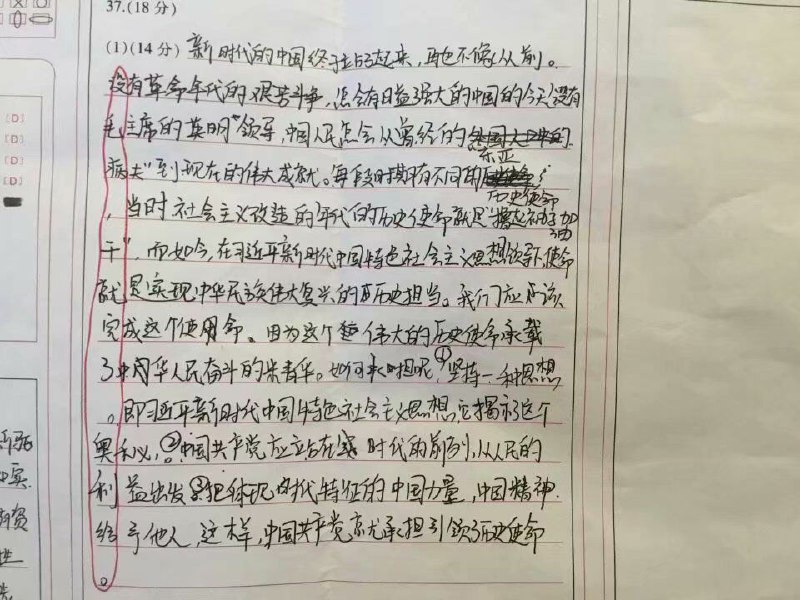 37.(18分)
(1)(14分) 新时代的中国终于站起来，再也不像从前。
没有革命年代的艰苦斗争，怎会有日益强大的中国的今天，没有
毛主席的英明"领导，中国人民怎会从曾经的
东亚
病夫"到现在的伟大成就。每段时期有不同的
历史使命
，当时社会主义改造的年代的历史使命就是"撸起袖子加油
干"，而如今，在习近平新时代中国特色社会主义思想领导下，使命
就是实现中华民族伟大复兴的历史担当。我们应该
完成这个使命。因为这个伟大的历史使命承载
了中华人民奋斗的精华。如何承担呢，①坚持一种思想
。即习近平新时代中国特色社会主义思想，它揭示了这个
奥秘，②中国共产党应立站在 时代的前列，从人民的
利益出发③把体现时代特征的中国力量，中国精神
给予他人，这样，中国共产党就承担引领了历史使命
。
[D]
[D]
[D]
[D]